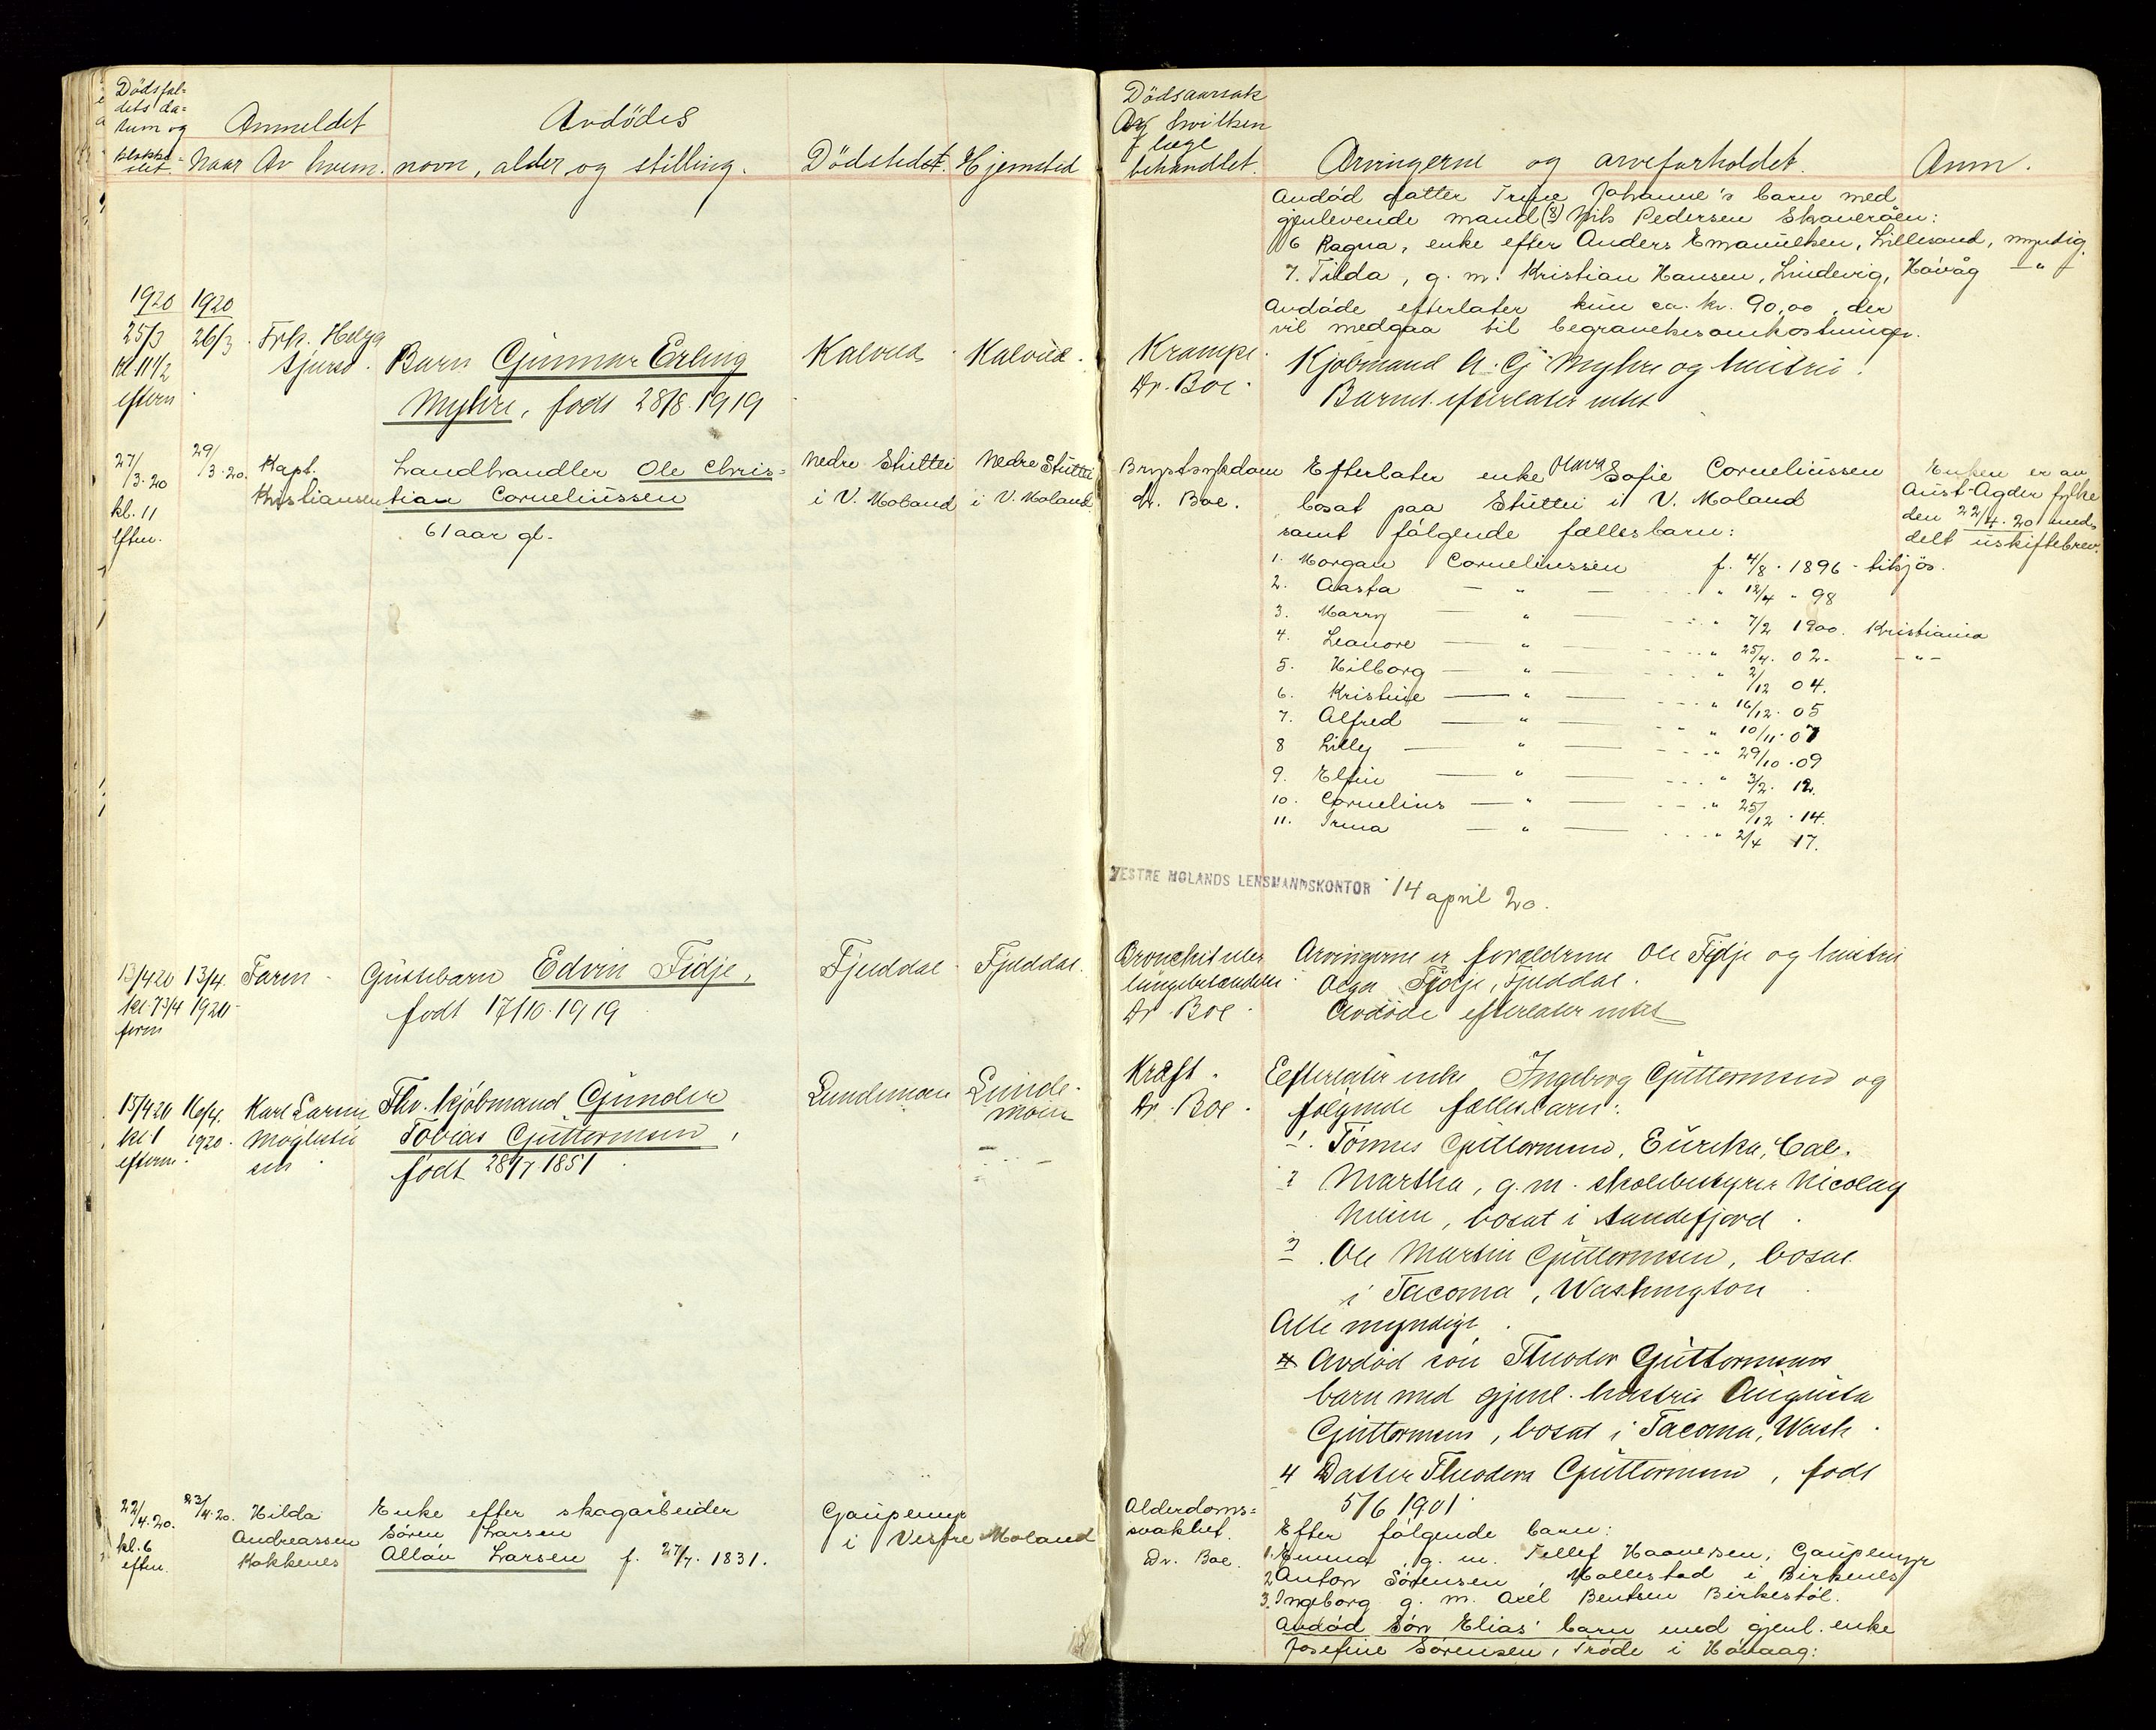 Dödsfal-
dets da-
tum og
klokke-
slet.
Anmeldet
Naar Av hvem.
Avdödes
navn, alder og stilling.
Dödsted.
Hjemsted
Dödsaarsak
Av hvilken
læge
behandlet.
Arvingerne og arveforholdet.
Anm.
Avdöd datter Trine Johanne's barn med
gjenlevende mand (3) Nils Pedersen Skaueröen:
6 Ragna, enke efter Anders Emanuelsen, Lillesand, myndig.
7. Tilda, g. m. Kristian Hansen, Lindevig, Hövåg — " —
Avdöde efterlater kun ca. kr. 90,00, der
vil medgaa til begravelsesomkostninger.
1920 1920
25/3 26/3 Frk. Helga
kl 11 1/2
eftm
Barn Gunnar Erling
Myhre, født 28/8.1919
Kalvild Kalvild.
Krampe.
Dr. Boe.
Kjöbmand A. G. Myhre og hustru.
Barnet efterlater intet
27/3.20
kl. 11
eftm.
29/3.20.
Kapt.
Kristiansen
Landhandler Ole Chris=
tian Corneliussen
61 aar gl.
Nedre Stuttei
i V. Moland
Nedre Stuttei
i V. Moland
Brystsykdom
dr. Boe.
Efterlater enke Olava Sofie Corneliussen
bosat paa Stuttei i V. Moland
samt fölgende fællesbarn:
Enken er av
Aust-Agder fylke
den 22/4.20 med-
delt uskiftebrev.
1. Morgan Corneliussen f. 4/8. 1896 - tilsjös.
2. Aasta — " — " 12/4 " 98
3. Harry — " — " 7/2 1900. Kristiania
4. Leanore — " — " 25/4. 02. — " —
5. Hilborg — " — " 2/12 04.
6. Kristine — " — " 16/12. 05
7. Alfred — " — " 10/11. 07
8 Lilly — " — " 29/10. 09
9. Elfin — " — " 3/2. 12.
10. Cornelius — " — " 25/12. 14.
11. Irma — " — " 2/4 17.
VESTRE MOLANDS LENSMANDSKONTOR 14 april 20.
13/4 20
kl. 7 3/4
form
13/4.
1920
Faren
Guttebarn Edvin Fidje,
født 17/10.1919
Fjelddal Fjelddal.
Bronchit eller
lungebetændelse
Dr. Boe.
Arvingerne er forældrene Ole Fidje og hustru
Olga Fidje, Fjelddal.
Avdöde efterlater intet
15/4 20
kl 1
eftm.
16/4.
1920.
Karl Larsen
Møglestu
Fhv. kjöbmand Gunder
Tobias Guttormsen,
født 28/7 1851
Lundemoen
Lunde-
moen
Kræft.
Dr. Boe.
Efterlater enke Ingeborg Guttormsen og
følgende fællesbarn:
1. Tönnes Guttormsen, Eureka, Cal.
2 Martha, g. m. skolebestyrer Nicolay
bosat i Sandefjord
3 Ole Martin Guttormsen, bosat
i Tacoma, Washington
Alle myndige.
Avdöd sön Theodor Guttormsens
barn med gjenl. hustru Augusta
Guttormsen, bosat i Tacoma, Wash.
4 Datter Theodora Guttormsen, født
5/6 1901
22/4.20.
kl. 6
eftm.
23/4.20.
Hilda
Andreassen
Kokkenes
Enke efter skogarbeider
Sören Larsen
Allau Larsen f. 27/7. 1831.
Gaupemyr
i Vestre Moland
Alderdoms=
svakhet.
Dr. Boe.
Efter fölgende barn:
1. Emma, g. m. Tellef Haavelsen, Gaupemyr
2 Anton Sörensen, Mollestad i Birkenes
3. Ingeborg g. m. Axel Bentsen Birkestöl.
Avdöd sön Elias' barn med gjenl. enke
Josefine Sörensen, Tröde i Hövaag: